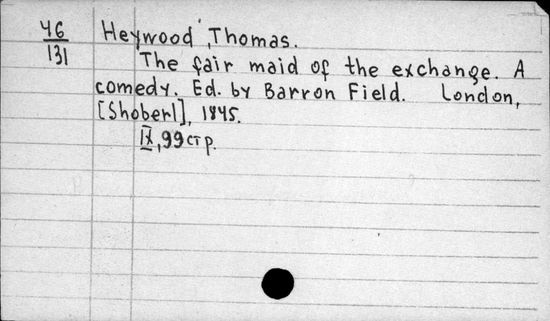 46
131
Heywood, Thomas.
The fair maid of the exchange. A
comedy. Ed. by Barron Field. London,
[Shoberl], 1845.
IX, 99 стр.